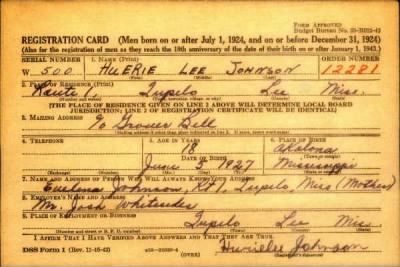 FORM APPROVED
REGISTRATION CARD (Men born on or after July 1, 1924, and on or before December 31, 1924)
(Also for the registration of men as they reach the 18th anniversary of the date of their birth on or after January 1, 1943.)
SERIAL NUMBER 1. NAME (Print) ORDER NUMBER
W 500 HUERIE LEE JOHNSON 12281
2. PLACE OF RESIDENCE (Print)
Route 1, Tupelo Lee Miss.
[THE PLACE OF RESIDENCE GIVEN ON LINE 2 ABOVE WILL DETERMINE LOCAL BOARD
JURISDICTION; LINE 2 OF REGISTRATION CERTIFICATE WILL BE IDENTICAL]
3. MAILING ADDRESS
% Grover Bell
4. TELEPHONE 5. AGE IN YEARS 6. PLACE OF BIRTH
18 Okolona
DATE OF BIRTH
June 5 1927 Mississippi
7. NAME AND ADDRESS OF PERSON WHO WILL ALWAYS KNOW YOUR ADDRESS
Johnson, Rt 1, Tupelo, Miss (Mother)
8. EMPLOYER'S NAME AND ADDRESS
Mr. Josh Whitesides
9. PLACE OF EMPLOYMENT OR BUSINESS
Tupelo Lee Miss.
I AFFIRM THAT I HAVE VERIFIED ABOVE ANSWERS AND THAT THEY ARE TRUE.
DSS Form 1 (Rev. 11-16-42) (OVER) Hurielee Johnson